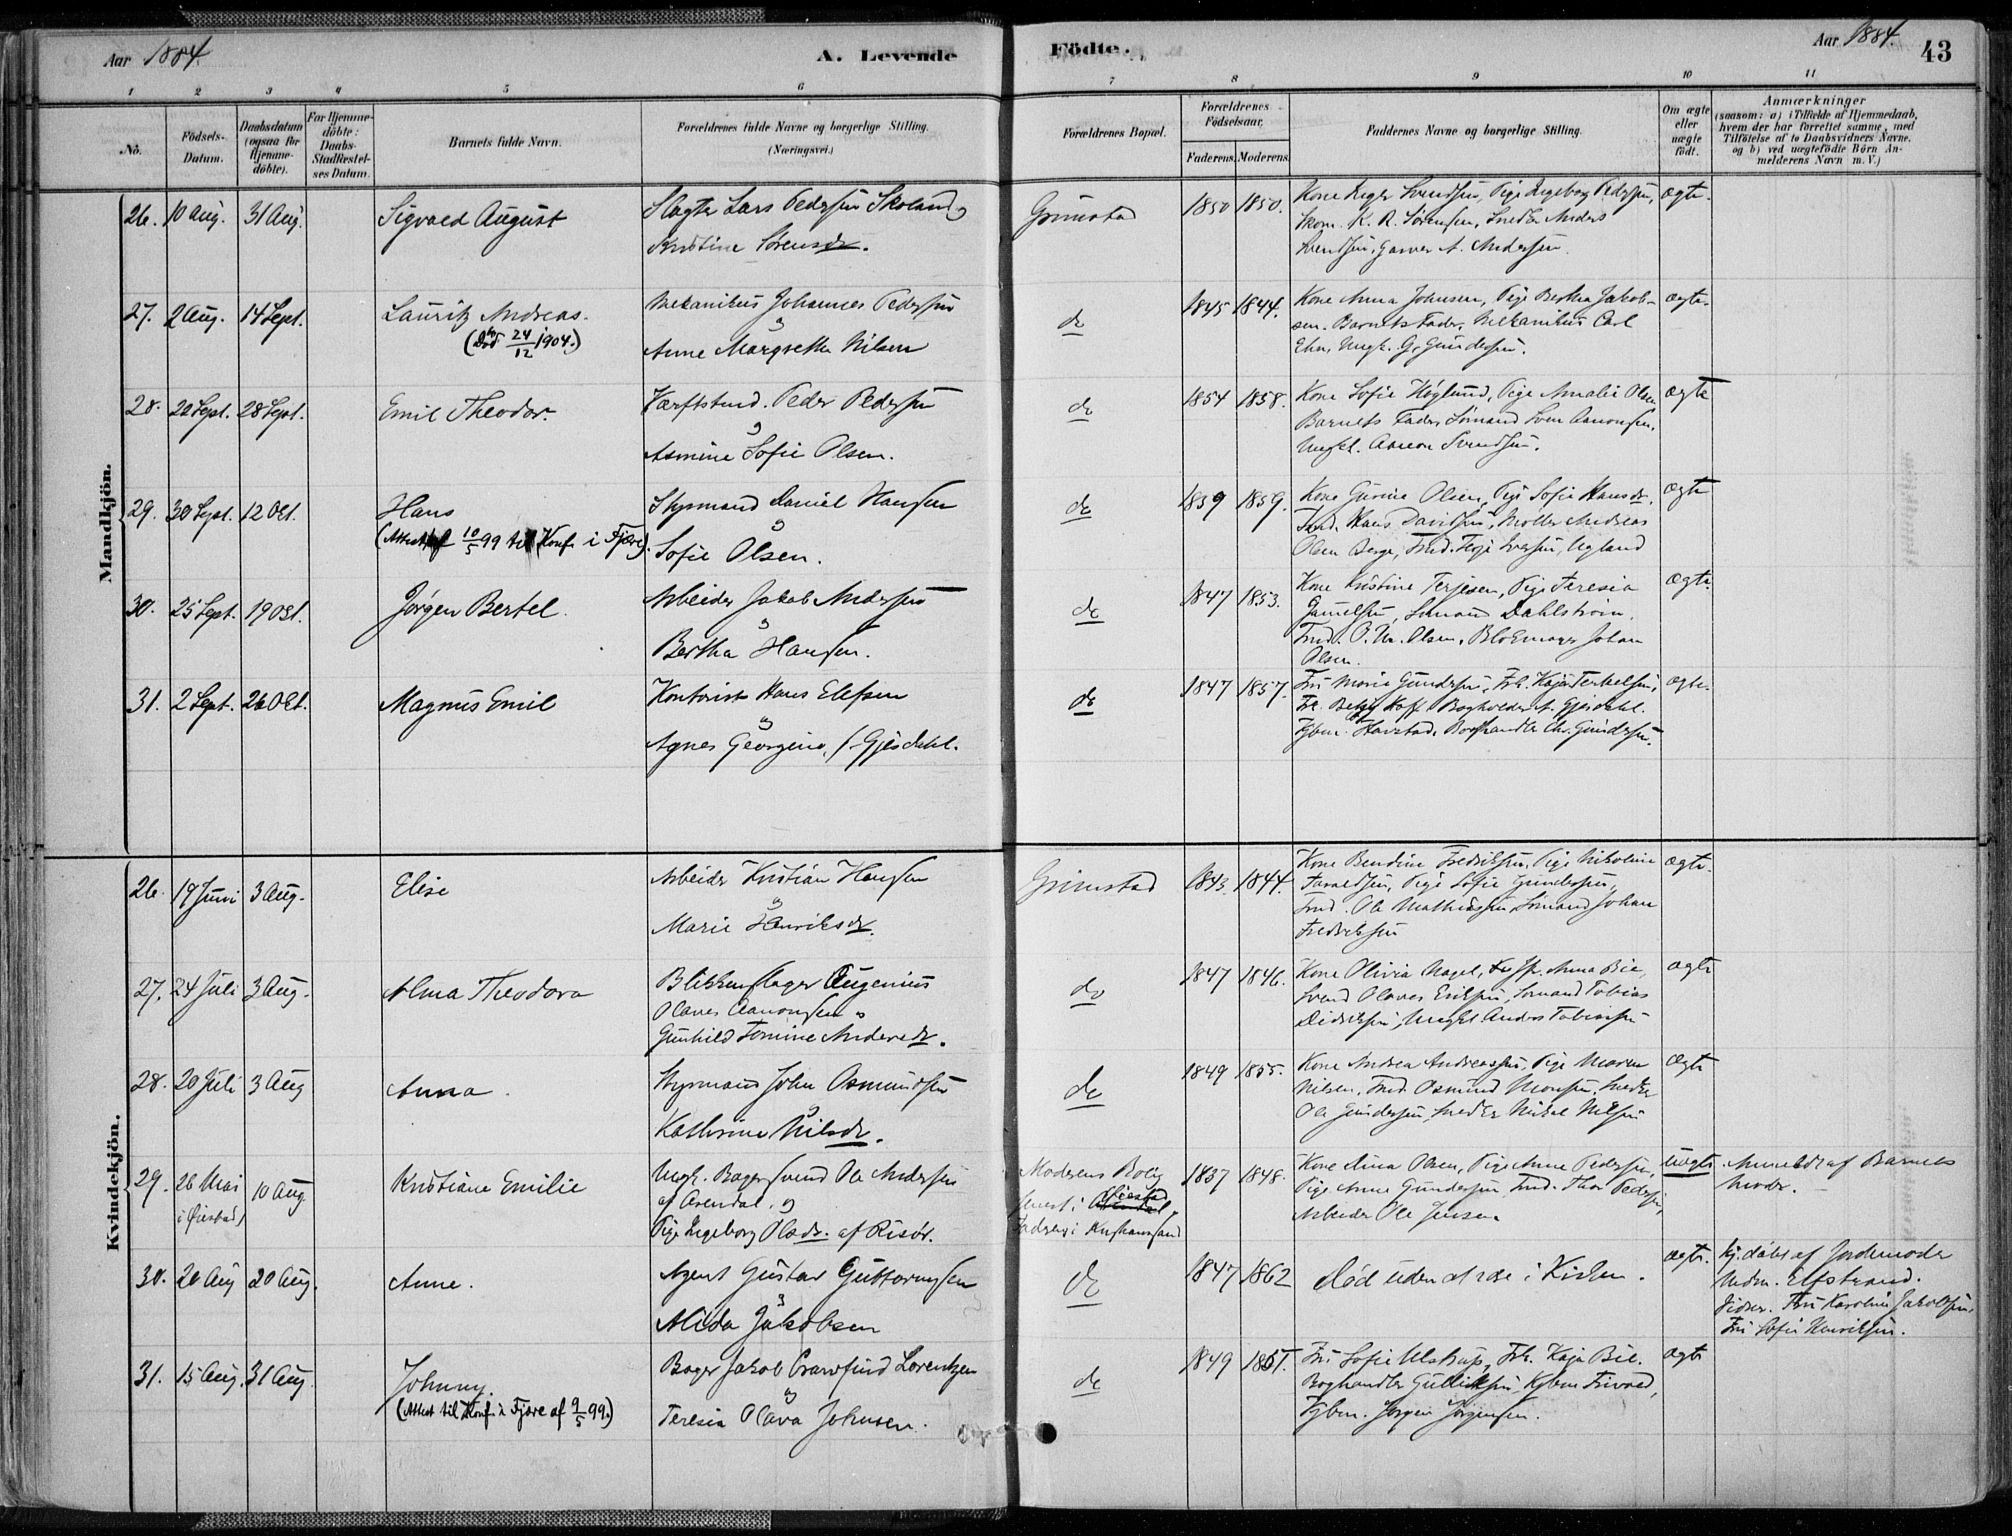 Aar 1884.
A. Levende
Födte.
Aar 1884.
43
1 2 3 4 5 6 7 8 9 10 11
No.
Födsels-Datum.
Daabsdatum (ogsaa for Hjemme-döbte).
For Hjemme-döbte: Daabs-Stadfæstelses Datum.
Barnets fulde Navn.
Forældrenes fulde Navne og borgerlige Stilling. (Næringsvei.)
Forældrenes Bopæl.
Forældrenes Födselsaar.
Faderens. Moderens.
Faddernes Navne og borgerlige Stilling.
Om ægte eller uægte födt.
Anmærkninger
(saasom: a) i Tilfælde af Hjemmedaab, hvem der har forrettet samme, med Tilföielse af to Daabsvidners Navne, og b) ved uægtefödte Börn Anmelderens Navn m. V.)
Mandkjön.
26. 10 Aug. 31 Aug. Sigvald August
Slagter Lars Pedersen Skoland og
Kristine Sørensdr.
Grimstad 1850 1850.
Svendsen, Pige Ingeborg Pedersen,
K. R. Sørensen, Anders
Svendsen, Garver A. Andersen.
ægte.
27. 2 Aug. 14 Sept. Lauritz Andreas.
(Død 24/12 1904.)
Mekanikus Johannes Pedersen
og
Anne Margrethe Nilsen
do 1845 1844.
Kone Anna Johnsen, Pige Bertha Jakob-
sen. Barnets Fader, Mekanikus Carl
Ungk. G. Gundersen.
ægte.
28. 22 Sept. 28 Sept. Emil Theodor.
Peder Pedersen
og
Asmine Sofie Olsen.
do 1854 1858.
Kone Sofie Höglund, Pige Amalie Olsen
Barnets Fader, Sömand Sven Aanonsen,
Ungkl. Aanon Svendsen.
ægte
29. 30 Sept. 12 Okt. Hans
(Attest af 10/5 99 til Konf. i Fjære).
Styrmand Daniel Hansen
og
Sofie Olsen.
do 1859 1859.
Kone Gurine Olsen, Pige Sofie Hansdr.
Hans Davidsen, Møller Andreas
Olsen Berge, Iversen, Ugland
ægte
30. 25 Sept. 19 Okt. Jørgen Bertel.
Arbeider Jakob Andersen
og
Bertha Hansen.
do 1847 1853.
Kone Kristine Terjesen, Pige Teresia
Sömand Dahlström.
Olsen, Johan
Olsen.
ægte.
31. 2 Sept. 26 Okt. Magnus Emil
Kontorist Hans Elefsen
og
Agnes Georgine, f. Gjesdahl.
do 1847 1857.
Fru Marie Gundersen, Frk. Kaja Terkelsen,
Frk. Betzy Boghvolder A. Gjesdahl.
Kjbm. Havstad, Boghandler Chr. Gundersen.
ægte.
Kvindekjön.
26. 19 Juni 3 Aug. Elise
Arbeider Kristian Hansen
og
Marie Henriksdr.
Grimstad 1843. 1844.
Kone Bendine Fredriksen, Pige Nikoline
Pige Sofie Gundersen,
Ole Mathiassen, Sømand Johan
Fredriksen
ægte.
27. 24 Juli 3 Aug. Alma Theodora
Blikkenslager Eugenius
Olaves Aanonsen og
Gunhild Tomine Andersdr.
do 1847 1846.
Kone Olivia Nagel, Anna Bie,
Svend Olaves Eriksen, Sømand Tobias
Didriksen, Ungkl. Anders Tobiassen
ægte
28. 20 Juli 3 Aug Anna.
Styrmand John Osmundsen
og
Kathrine Nilsdr.
do 1849 1855.
Kone Andrea Andreassen, Pige Maren
Nilsen, Osmund Monsen, Snedker
Ole Gundersen, Snedker Mikal Nilsen
ægte
29. 26 Mai 10 Aug. Kristiane Emilie
i Øiestad,
Ungk. Bagersvend Ole Andersen
af Arendal. og
Pige Ingeborg Olsdr. af Risør.
Moderens Bolig
Øiestad
Faderens i Kristianssand
1837 1848.
Kone Elina Olsen, Pige Anne Pedersen,
Pige Anne Gundersen, Thor Pedersen,
Arbeider Ole Jensen
uægte
Anmeldt af Barnets
Moder.
30. 20 Aug 20 Aug. Anne.
Agent Gustav Guttormsen
og
Alida Jakobsen
do 1847 1862
Død uden at være i Kirken.
ægte.
Hj. døbt af Jordemoder
Madm. Elfstrand.
Vidner. Fru Karoline Jakobsen,
Fru Sofie Henriksen.
31. 15 Aug. 31 Aug. Johnny.
(Attest til Konf. i Fjære af 9/5 99.)
Bager Jakob Crawfurd Lorentzen
og
Teresia Olava Johnsen.
do 1849 1857.
Fru Sofie Ulstrup, Frk. Kaja Bie.
Boghandler Gulliksen, Kjbm.
Kjbm. Jørgen Jørgensen.
ægte